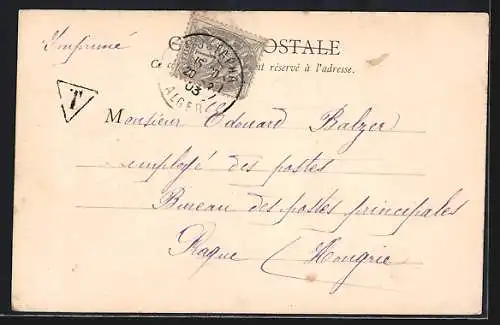 Imprimé
C OSTALE
Ce nt réservé à l'adresse.
20
03
ALGER
T
Monsieur Edouard Balzer
employé des postes
Bureau des postes principales
Prague (Hongrie